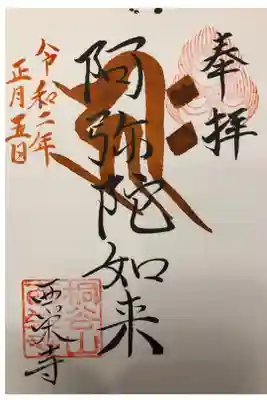 奉拝
阿弥陀如来
令和二年
正月五日
桐谷山
西栄寺